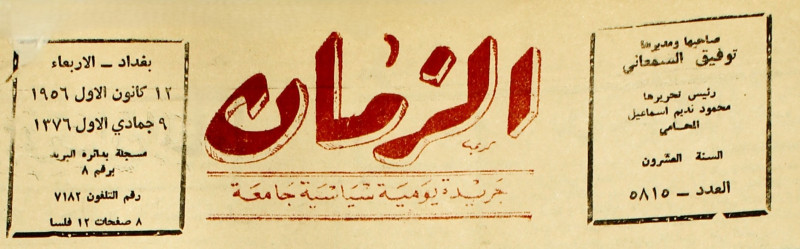 صاحبها ومديرها
توفيق السمعاني
رئيس تحريرها
محمود نديم اسماعيل
المحامي
السنة العشرون
العدد ــ ٥٨١٥
الزمان
جريدة يومية سياسية جامعة
بغداد ــ الاربعاء
١٢ كانون الاول ١٩٥٦
٩ جمادي الاول ١٣٧٦
مسجلة بدائرة البريد
برقم ٨
رقم التلفون ٧١٨٢
٨ صفحات ١٢ فلسا